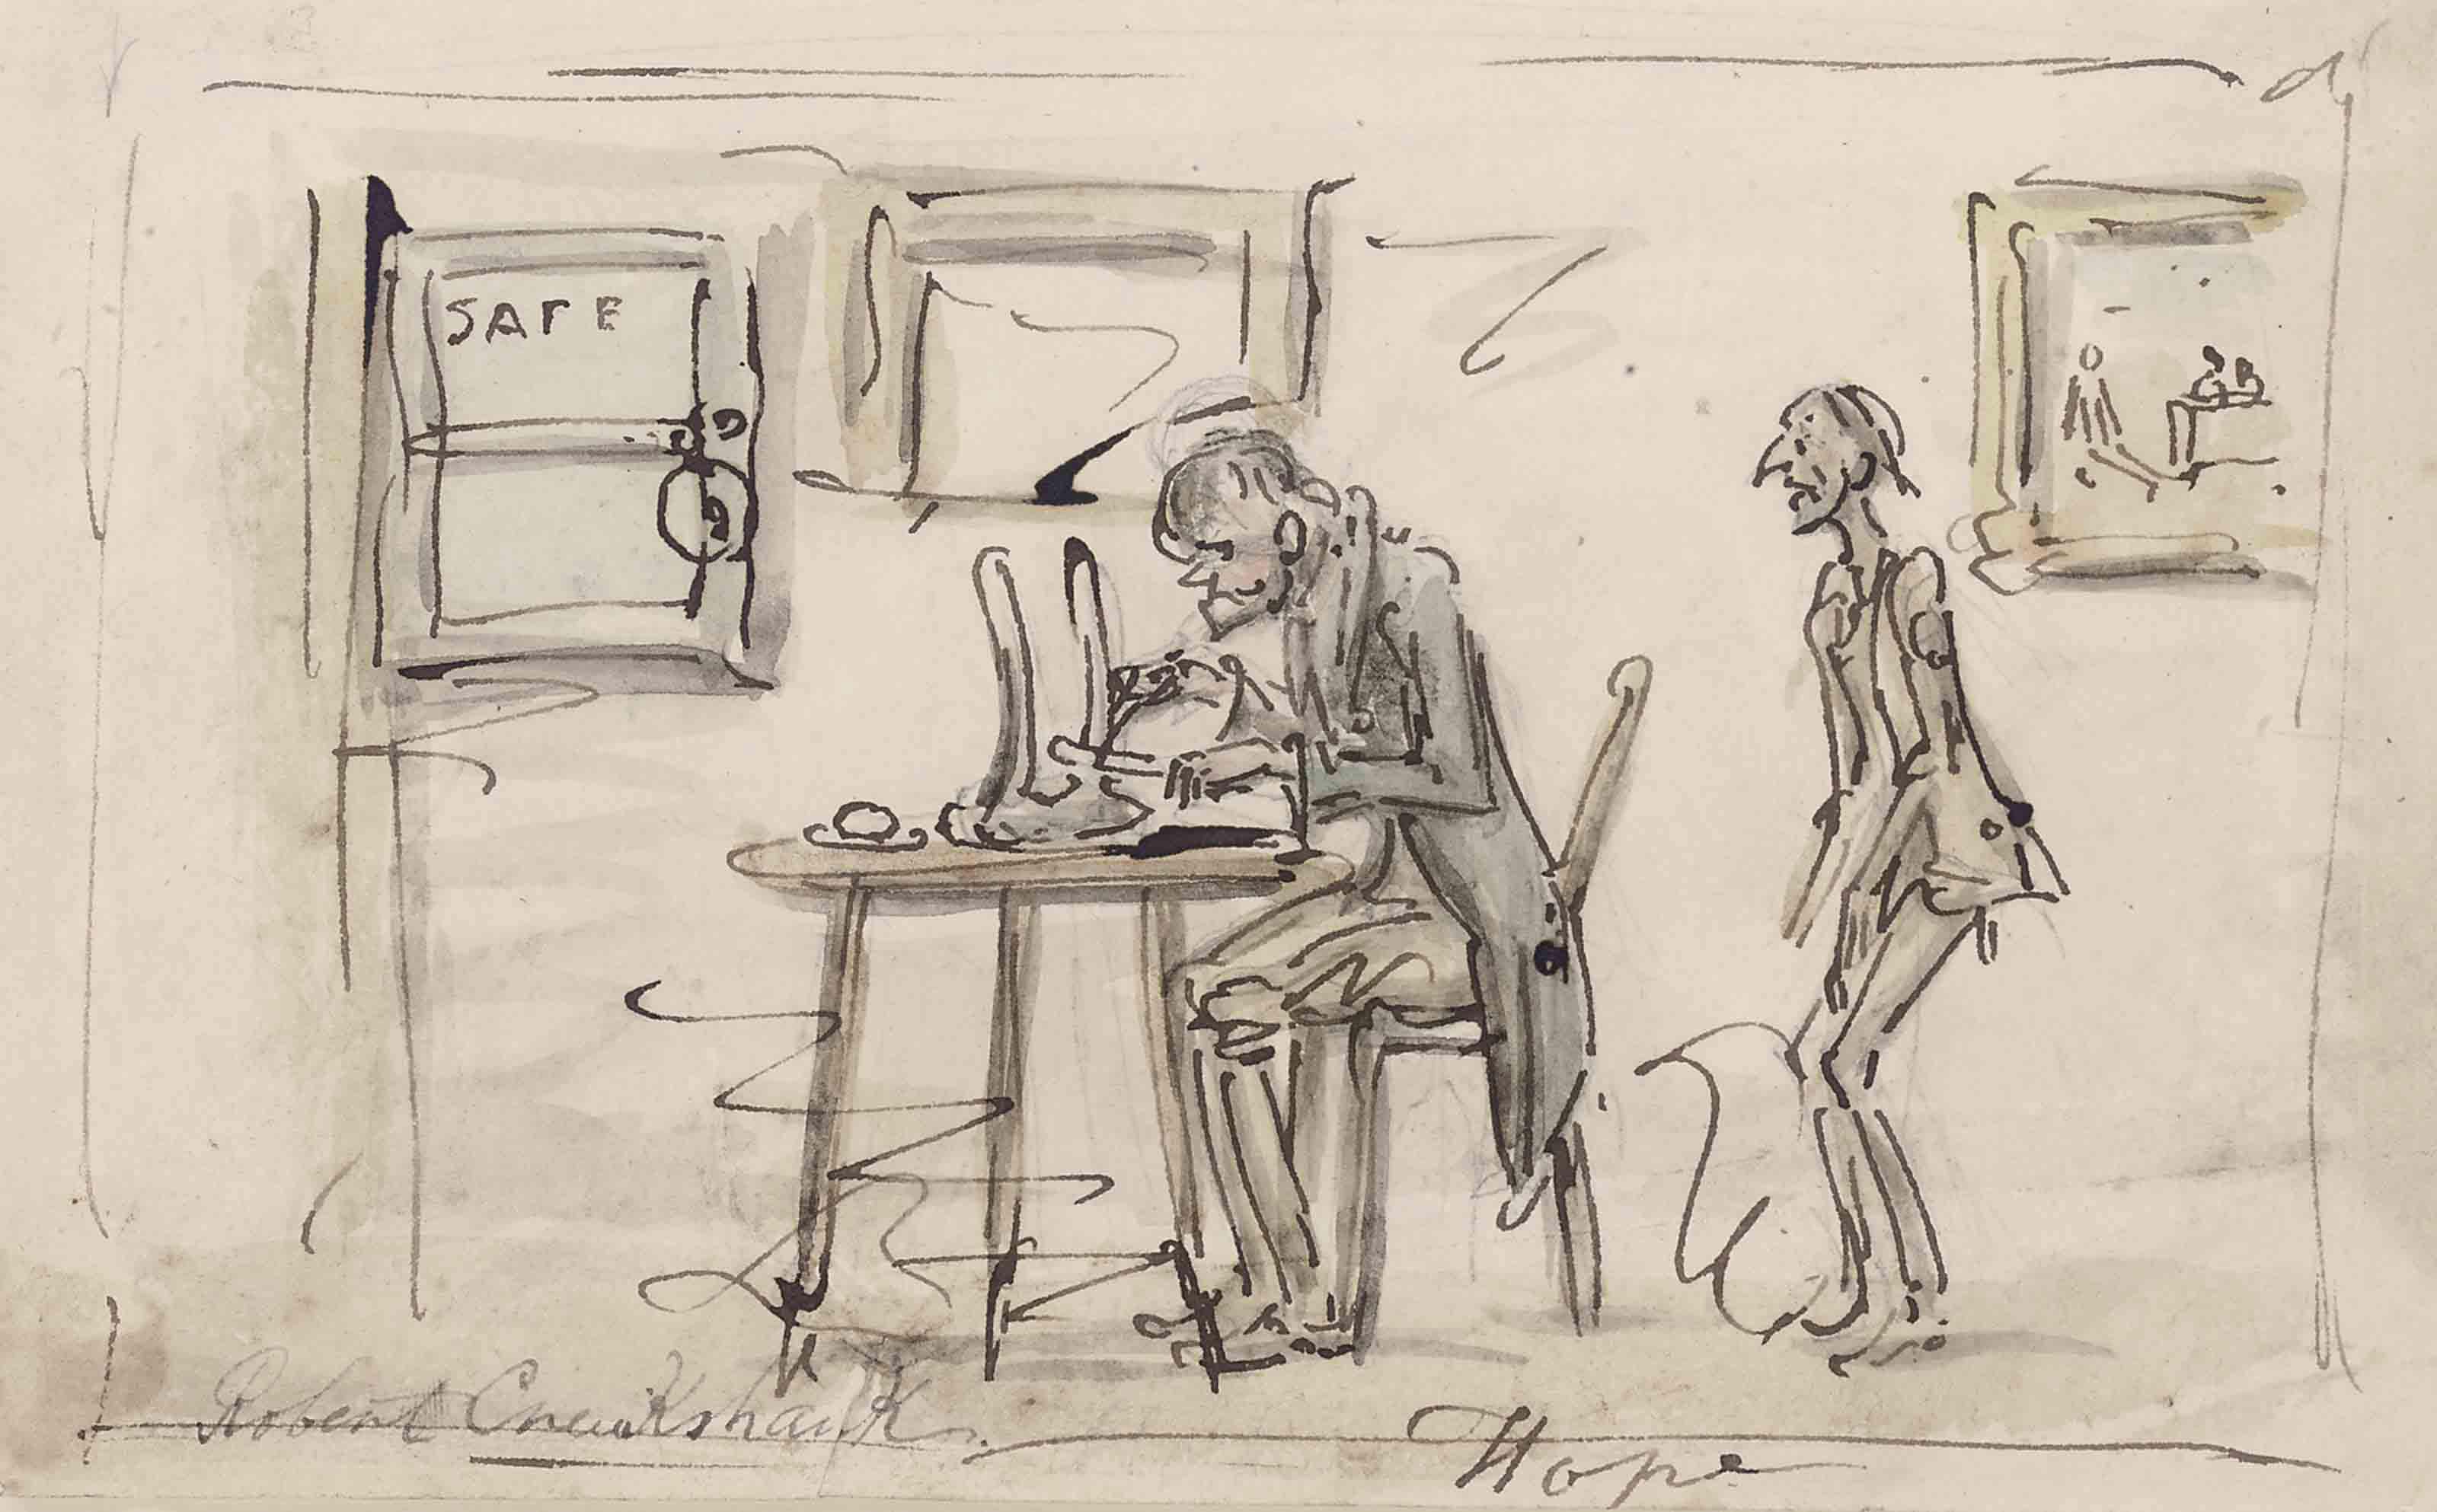 SAFE
Robert Cruikshank
Hope